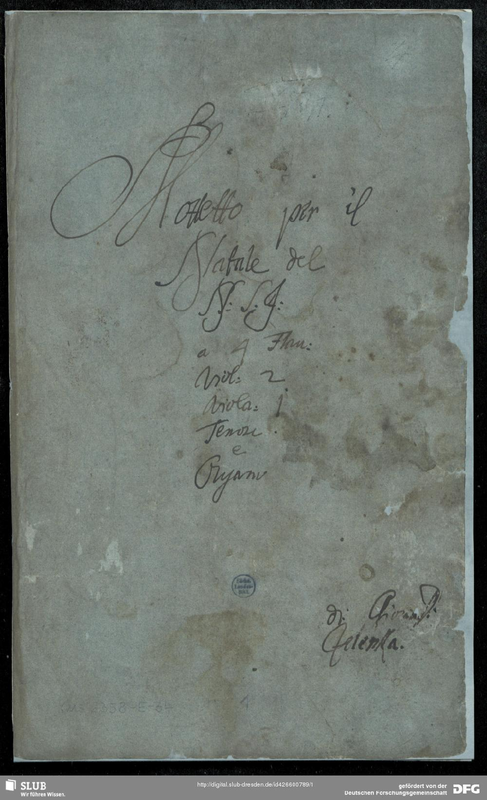 Motetto per il
Natale del
N: S: J:
a
Viol: 2
Viola: 1
Tenore
e
di Giovan
Zelenka.
SLUB
Wir führen Wissen.
http://digital.slub-dresden.de/id426660789/1
gefördert von der
Deutschen Forschungsgemeinschaft
DFG